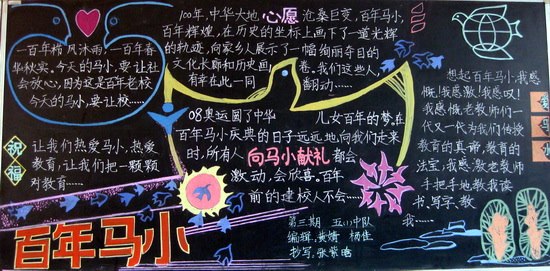 一百年栉风沐雨,一百年春
华秋实。今天的马小,要让社
会放心,因为这是百年老校
今天的马小,要让校……
祝福
让我们热爱马小,热爱
教育,让我们把一颗颗
对教育……
百年马小
100年,中华大地心愿沧桑巨变,百年马小,
百年辉煌,在历史的坐标上画下了一道光辉
的轨迹,向家乡人展示了一幅绚丽夺目的
文化长廊和历史画卷。我们这些人,
有幸在此一同翻动……
08奥运圆了中华儿女百年的梦,在
百年马小庆典的日子远远地向我们走来
时,所有人向马小献礼都会
激动,会欣喜。百年
前的建校人不会……
第三期 五(1)中队
编辑:黄婧 杨佳
抄写:张紫
想起百年马小,我感
慨!我感激!我感叹!
我感慨老教师们一
代又一代为我们传授
教育的真谛,教育的
法宝;我感激老教师
手把手地教我读
书、写字、教
我……